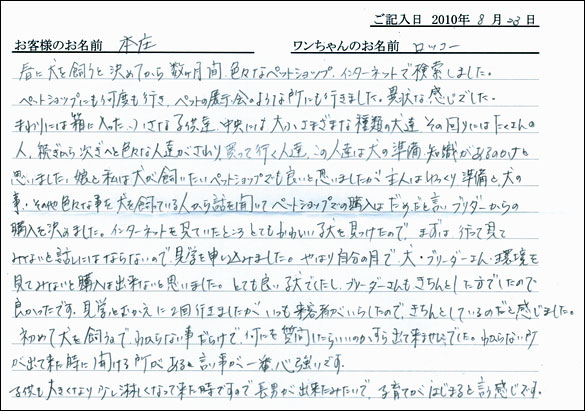 ご記入日 2010年 8月 23日
お客様のお名前 本庄 ワンちゃんのお名前 ロッコー
春に犬を飼うと決めてから数ヶ月間、色々なペットショップ、インターネットで検索しました。
ペットショップにも何度も行き、ペットの展示会のような所にも行きました。異状な感じでした。
まわりには箱に入った小さな子供達、中央には大小さまざまな種類の犬達、その回りにはたくさんの
人、次ぎから次ぎへと色々な人達がさわり、買って行く人達、この人達は犬の準備、知識があるのかと
思いました。娘と私は犬が飼いたいペットショップでも良いと思いましたが主人はじっくり準備と、犬の
事、その他色々な事を犬を飼っている人から話を聞いてペットショップでの購入はだめだと言いブリーダーからの
購入を決めました。インターネットを見ていたところとてもかわいい子犬を見つけたので、まずは行って見て
みないと話にはならないので、見学を申し込みました。やはり自分の目で、犬・ブリーダーさん・環境を
見てみないと購入は出来ないと思いました。とても良い犬でしたし、ブリーダーさんもきちんとした方でしたので
良かったです。見学とむかえに2回行きましたが、いつも来客がいらしたので、きちんとしているのだと感じました。
初めて犬を飼うので、わからない事だらけで、何を質問したらいいのかすら出て来ませんでした。わからない所
が出て来た時に聞ける所があると言う事が一番心強いです。
子供も大きくなり少し淋しくなって来た時ですので長男が出来たみたいで、子育てがはじまると言う感じです。